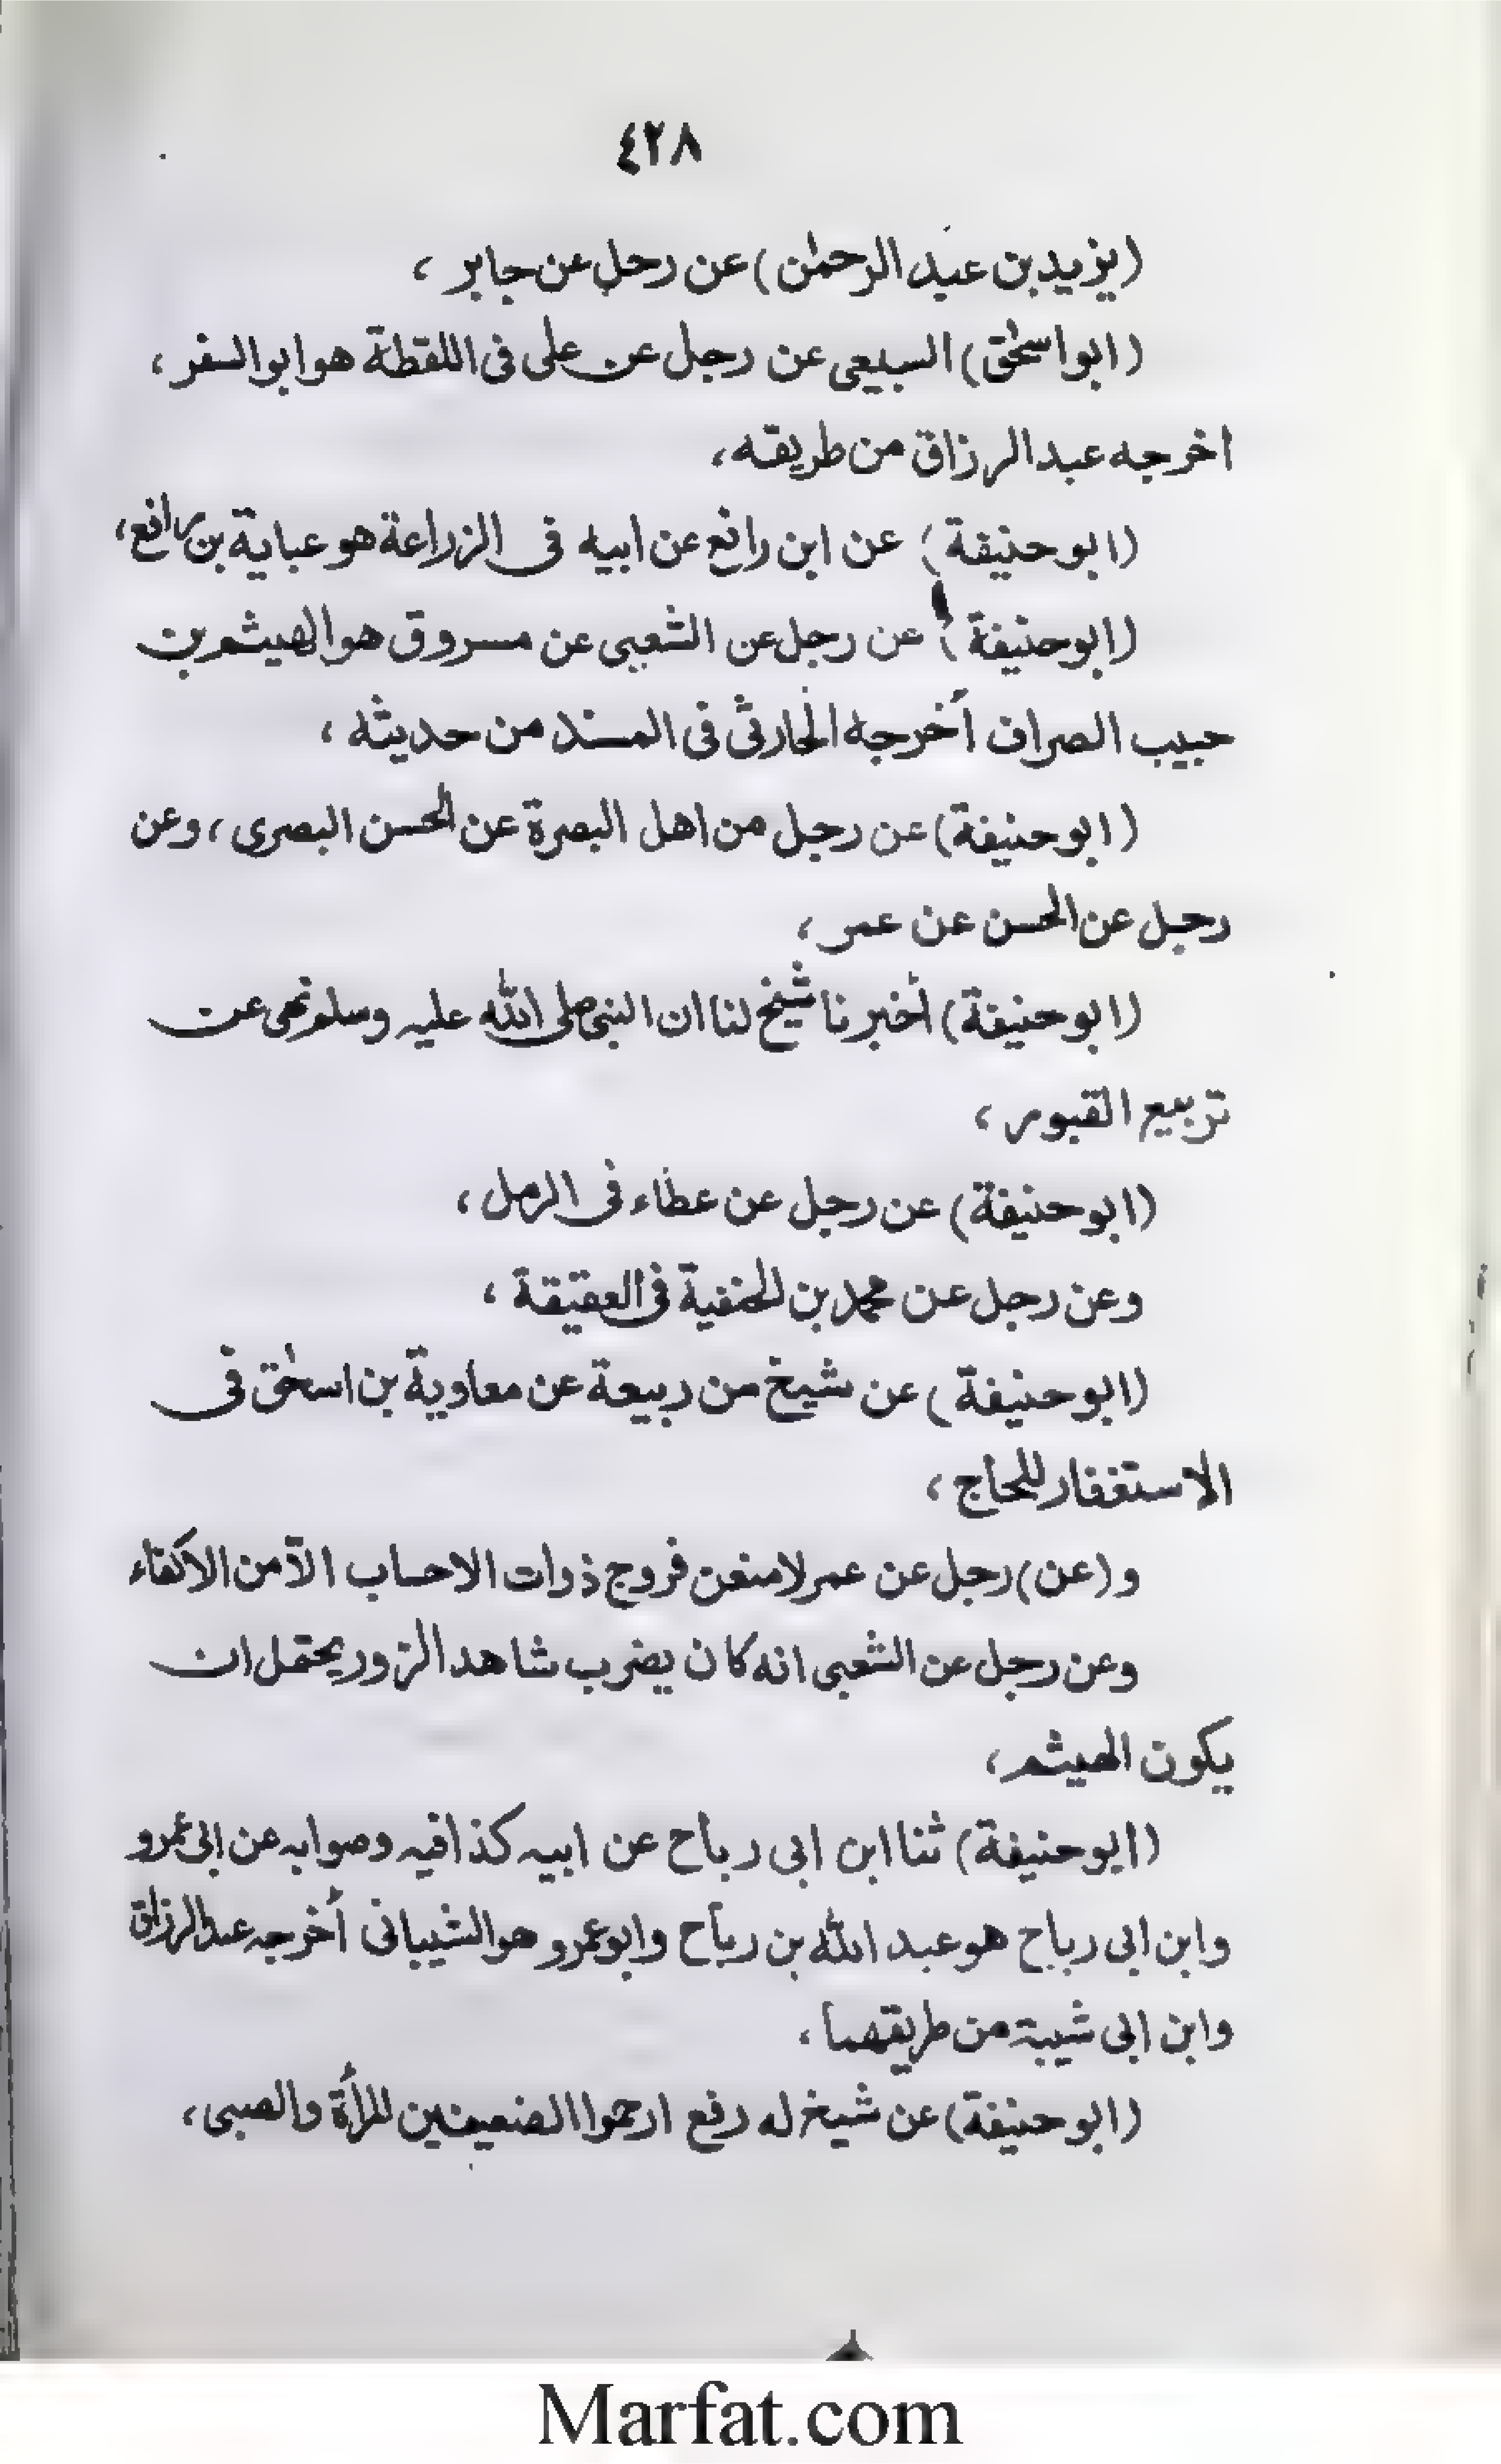 ٤٢٨
(يزيد بن عبد الرحمٰن) عن رجل عن جابر ،
(ابو اسحٰق) السبيعى عن رجل عن على فى اللقطة هو ابو السفر ،
اخرجه عبد الرزاق من طريقه ،
(ابو حنيفة) عن ابن رافع عن ابيه فى الزراعة هو عباية بن رافع ،
(ابو حنيفة) عن رجل عن الشعبى عن مسروق هو الهيثم بن
حبيب الصراف أخرجه الحارثى فى المسند من حديثه ،
(ابو حنيفة) عن رجل من اهل البصرة عن الحسن البصرى ، وعن
رجل عن الحسن عن عمر ،
(ابو حنيفة) أخبرنا شيخ لنا ان النبى صلى الله عليه وسلم نهى عن
تربيع القبور ،
(ابو حنيفة) عن رجل عن عطاء فى الرمل ،
وعن رجل عن محمد بن الحنفية فى العقيقة ،
(ابو حنيفة) عن شيخ من ربيعة عن معاوية بن اسحٰق فى
الاستغفار للحاج ،
و (عن) رجل عن عمر لامنعن فروج ذوات الاحساب الآ من الاكفاء
وعن رجل عن الشعبى انه كان يضرب شاهد الزور يحتمل ان
يكون الهيثم ،
(ابو حنيفة) ثنا ابن ابى رباح عن ابيه كذا فيه وصوابه عن ابى عمرو
وابن ابى رباح هو عبد الله بن رباح وابو عمرو هو الشيبانى أخرجه عبد الرزاق
وابن ابى شيبة من طريقهما ،
(ابو حنيفة) عن شيخ له رفع ارحموا الضعيفين المرأة والصبى ،
Marfat.com